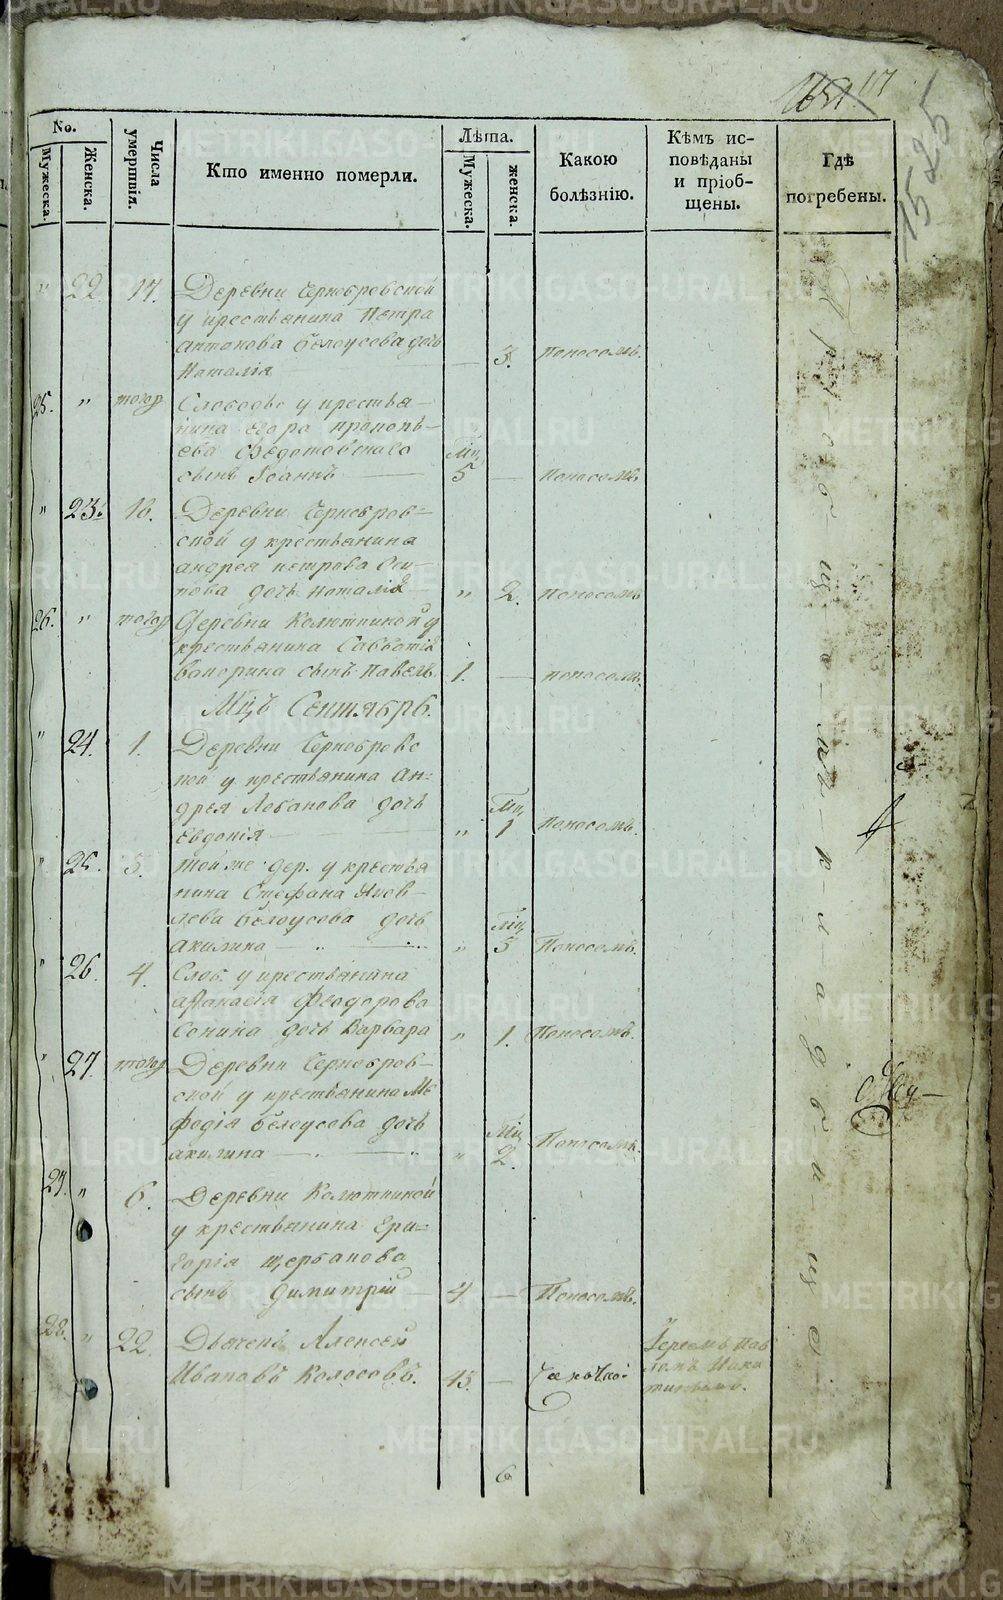 1651 117
1525
No.
Мужеска.
Женска.
Числа умертвія.
Кто именно померли.
Лѣта.
Мужеска.
женска.
Какою
болѣзнію.
Кѣмъ ис-
повѣданы
и пріоб-
щены.
Гдѣ
погребены.
" 22. 17. Деревни Чернобровской
у крестьянина Петра
Антонова Бѣлоусова дочь
Наталія — 3. поносомъ.
25. " тогож Слободы у крестья-
нина Егора Прокопь-
ева Ѳедотовскаго Мц.
сынъ Іоаннъ — 5 — поносомъ
" 23. 18. Деревни Черновров-
ской у крестьянина
Андрея Петрова Оси-
пова дочь Наталія " 2. поносомъ
26. " тогож Деревни Колюткиной у
крестьянина Савватія
Вапорина сынъ Павелъ. 1. — поносомъ.
Мцъ Сентябрь.
" 24. 1. Деревни Черновровс
кой у крестьянина Ан-
дрея Лебанова дочь Мц.
Евдокія — " 1 поносомъ.
" 25. 3. Той же дер. у крестья
нина Стефана Яков-
лева Бѣлоусова дочь Мц
Акилина — " 5 Поносомъ.
" 26 4. Слоб. у крестьянина
Аѳанасія Ѳеодорова
Сонина дочь Варвара " 1. Поносомъ.
" 27. тогож Деревни Черновров-
ской у крестьянина Ме
ѳодія Бѣлоусова дочь Мц
Акилина — " 2. Поносомъ.
27. " 6. Деревни Колюткиной
у крестьянина Гри-
горія Щербакова
сынъ Димитрій — 4 — Поносомъ.
28. " 22. Дьячекъ Алексей Іереемъ Пав
Ивановъ Колосовъ. 45. — Чахоткой
6
На приходскомъ кладбищѣ